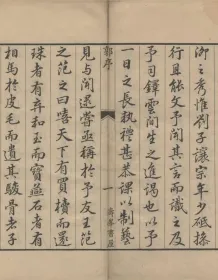 之秀惟子讓宗年少砥操
行且能文予聞其言而識之及
予司鐸雲間生之進謁也以予
一日之長執禮甚恭課以制藝
序
一
見与聞遠嘗亟稱於予友王范
之范之曰嘻天下有買櫝而還
珠者有棄和玉而寶燕石者有
相馬於皮毛而遺其駿骨者子